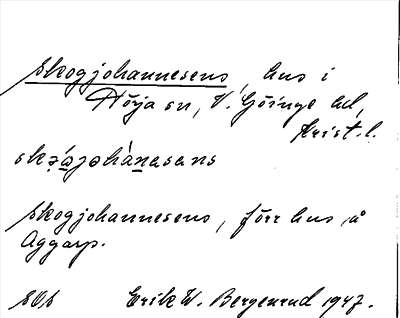 Skogjohannesens, hus i
Hörja sn, V. Göinge hd,
Krist. l.
Skogjohannesens, förr hus å
Aggarp.
Erik W. Bergenrud 1947.